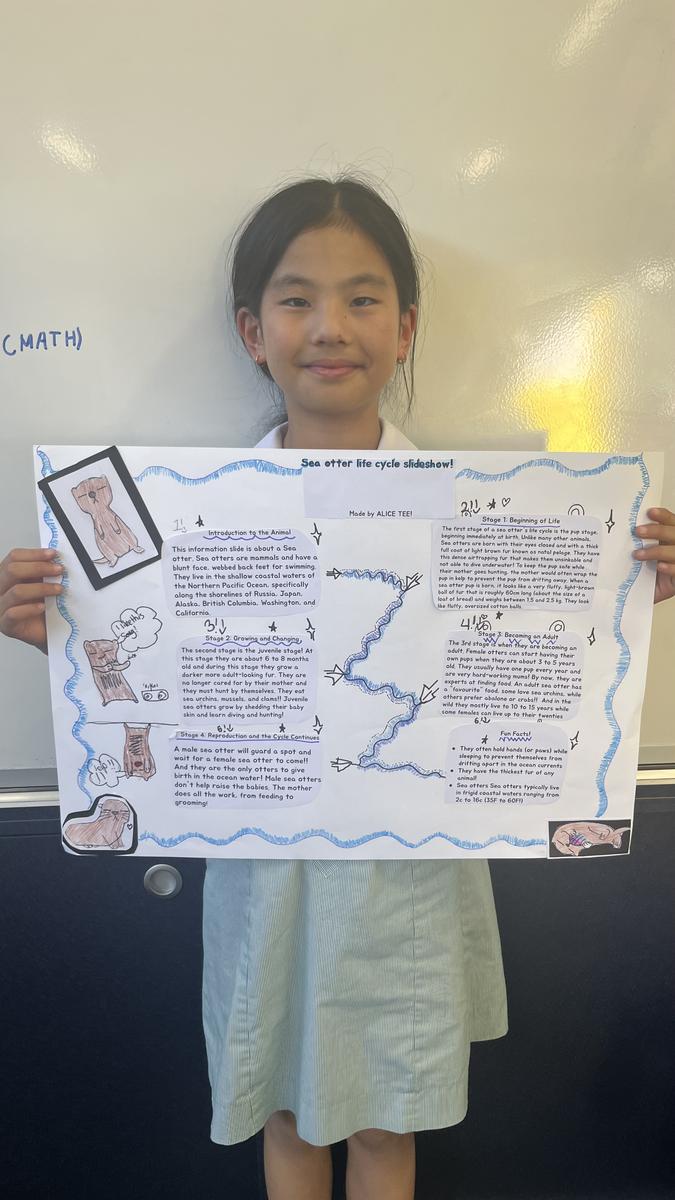 (MATH)
Sea otter life cycle slideshow!
Made by ALICE TEE!
1!!
Introduction to the Animal
This information slide is about a Sea
otter. Sea otters are mammals and have a
blunt face, webbed back feet for swimming.
They live in the shallow coastal waters of
the Northern Pacific Ocean, specifically
along the shorelines of Russia, Japan,
Alaska, British Columbia, Washington, and
California.
2!!
Stage 1: Beginning of Life
The first stage of a sea otter's life cycle is the pup stage,
beginning immediately at birth. Unlike many other animals,
Sea otters are born with their eyes closed and with a thick
full coat of light brown fur known as natal pelage. They have
this dense airtrapping fur that makes them unsinkable and
not able to dive underwater! To keep the pup safe while
their mother goes hunting, the mother would often wrap the
pup in kelp to prevent the pup from drifting away. When a
sea otter pup is born, it looks like a very fluffy, light-brown
ball of fur that is roughly 60cm long (about the size of a
loaf of bread) and weighs between 1.5 and 2.5 kg. They look
like fluffy, oversized cotton balls.
3!!
Stage 2: Growing and Changing
The second stage is the juvenile stage! At
this stage they are about 6 to 8 months
old and during this stage they grow a
darker more adult-looking fur. They are
no longer cared for by their mother and
they must hunt by themselves. They eat
sea urchins, mussels, and clams!! Juvenile
sea otters grow by shedding their baby
skin and learn diving and hunting!
4!!
Stage 3: Becoming an Adult
The 3rd stage is when they are becoming an
adult. Female otters can start having their
own pups when they are about 3 to 5 years
old. They usually have one pup every year and
are very hard-working mums! By now, they are
experts at finding food. An adult sea otter has
a "favourite" food, some love sea urchins, while
others prefer abalone or crabs!! And in the
wild they mostly live to 10 to 15 years while
some females can live up to their twenties
Stage 4: Reproduction and the Cycle Continues
A male sea otter will guard a spot and
wait for a female sea otter to come!!
And they are the only otters to give
birth in the ocean water! Male sea otters
don't help raise the babies. The mother
does all the work, from feeding to
grooming!
Fun Facts!
• They often hold hands (or paws) while
sleeping to prevent themselves from
drifting apart in the ocean currents
• They have the thickest fur of any
animal!
• Sea otters Sea otters typically live
in frigid coastal waters ranging from
2c to 16c (35F to 60F!)